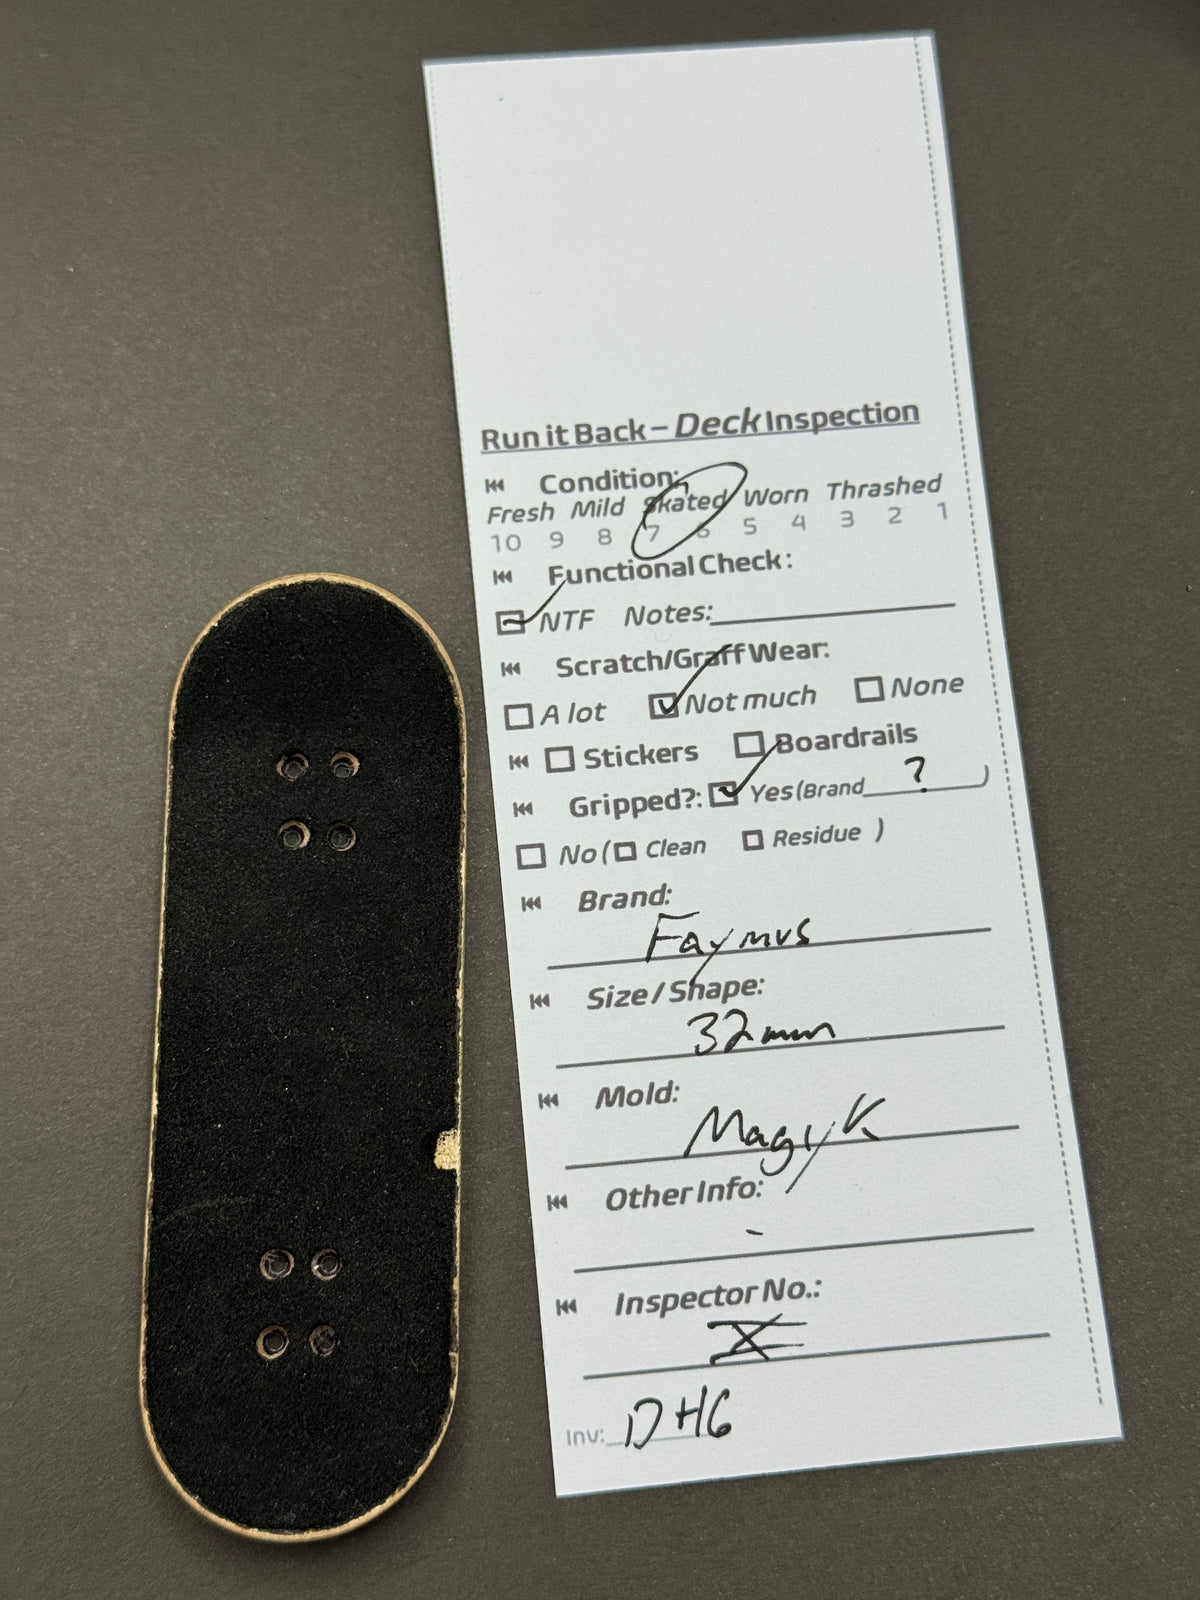 Run it Back – Deck Inspection
Condition:
Fresh Mild Skated Worn Thrashed
10 9 8 7 6 5 4 3 2 1
Functional Check:
NTF Notes:
Scratch/Graff Wear:
A lot Not much None
Stickers Boardrails
Gripped?: Yes (Brand ? )
No ( Clean Residue )
Brand:
Faymus
Size / Shape:
32mm
Mold:
Magiyk
Other Info:
-
Inspector No.:
X
Inv: DH6